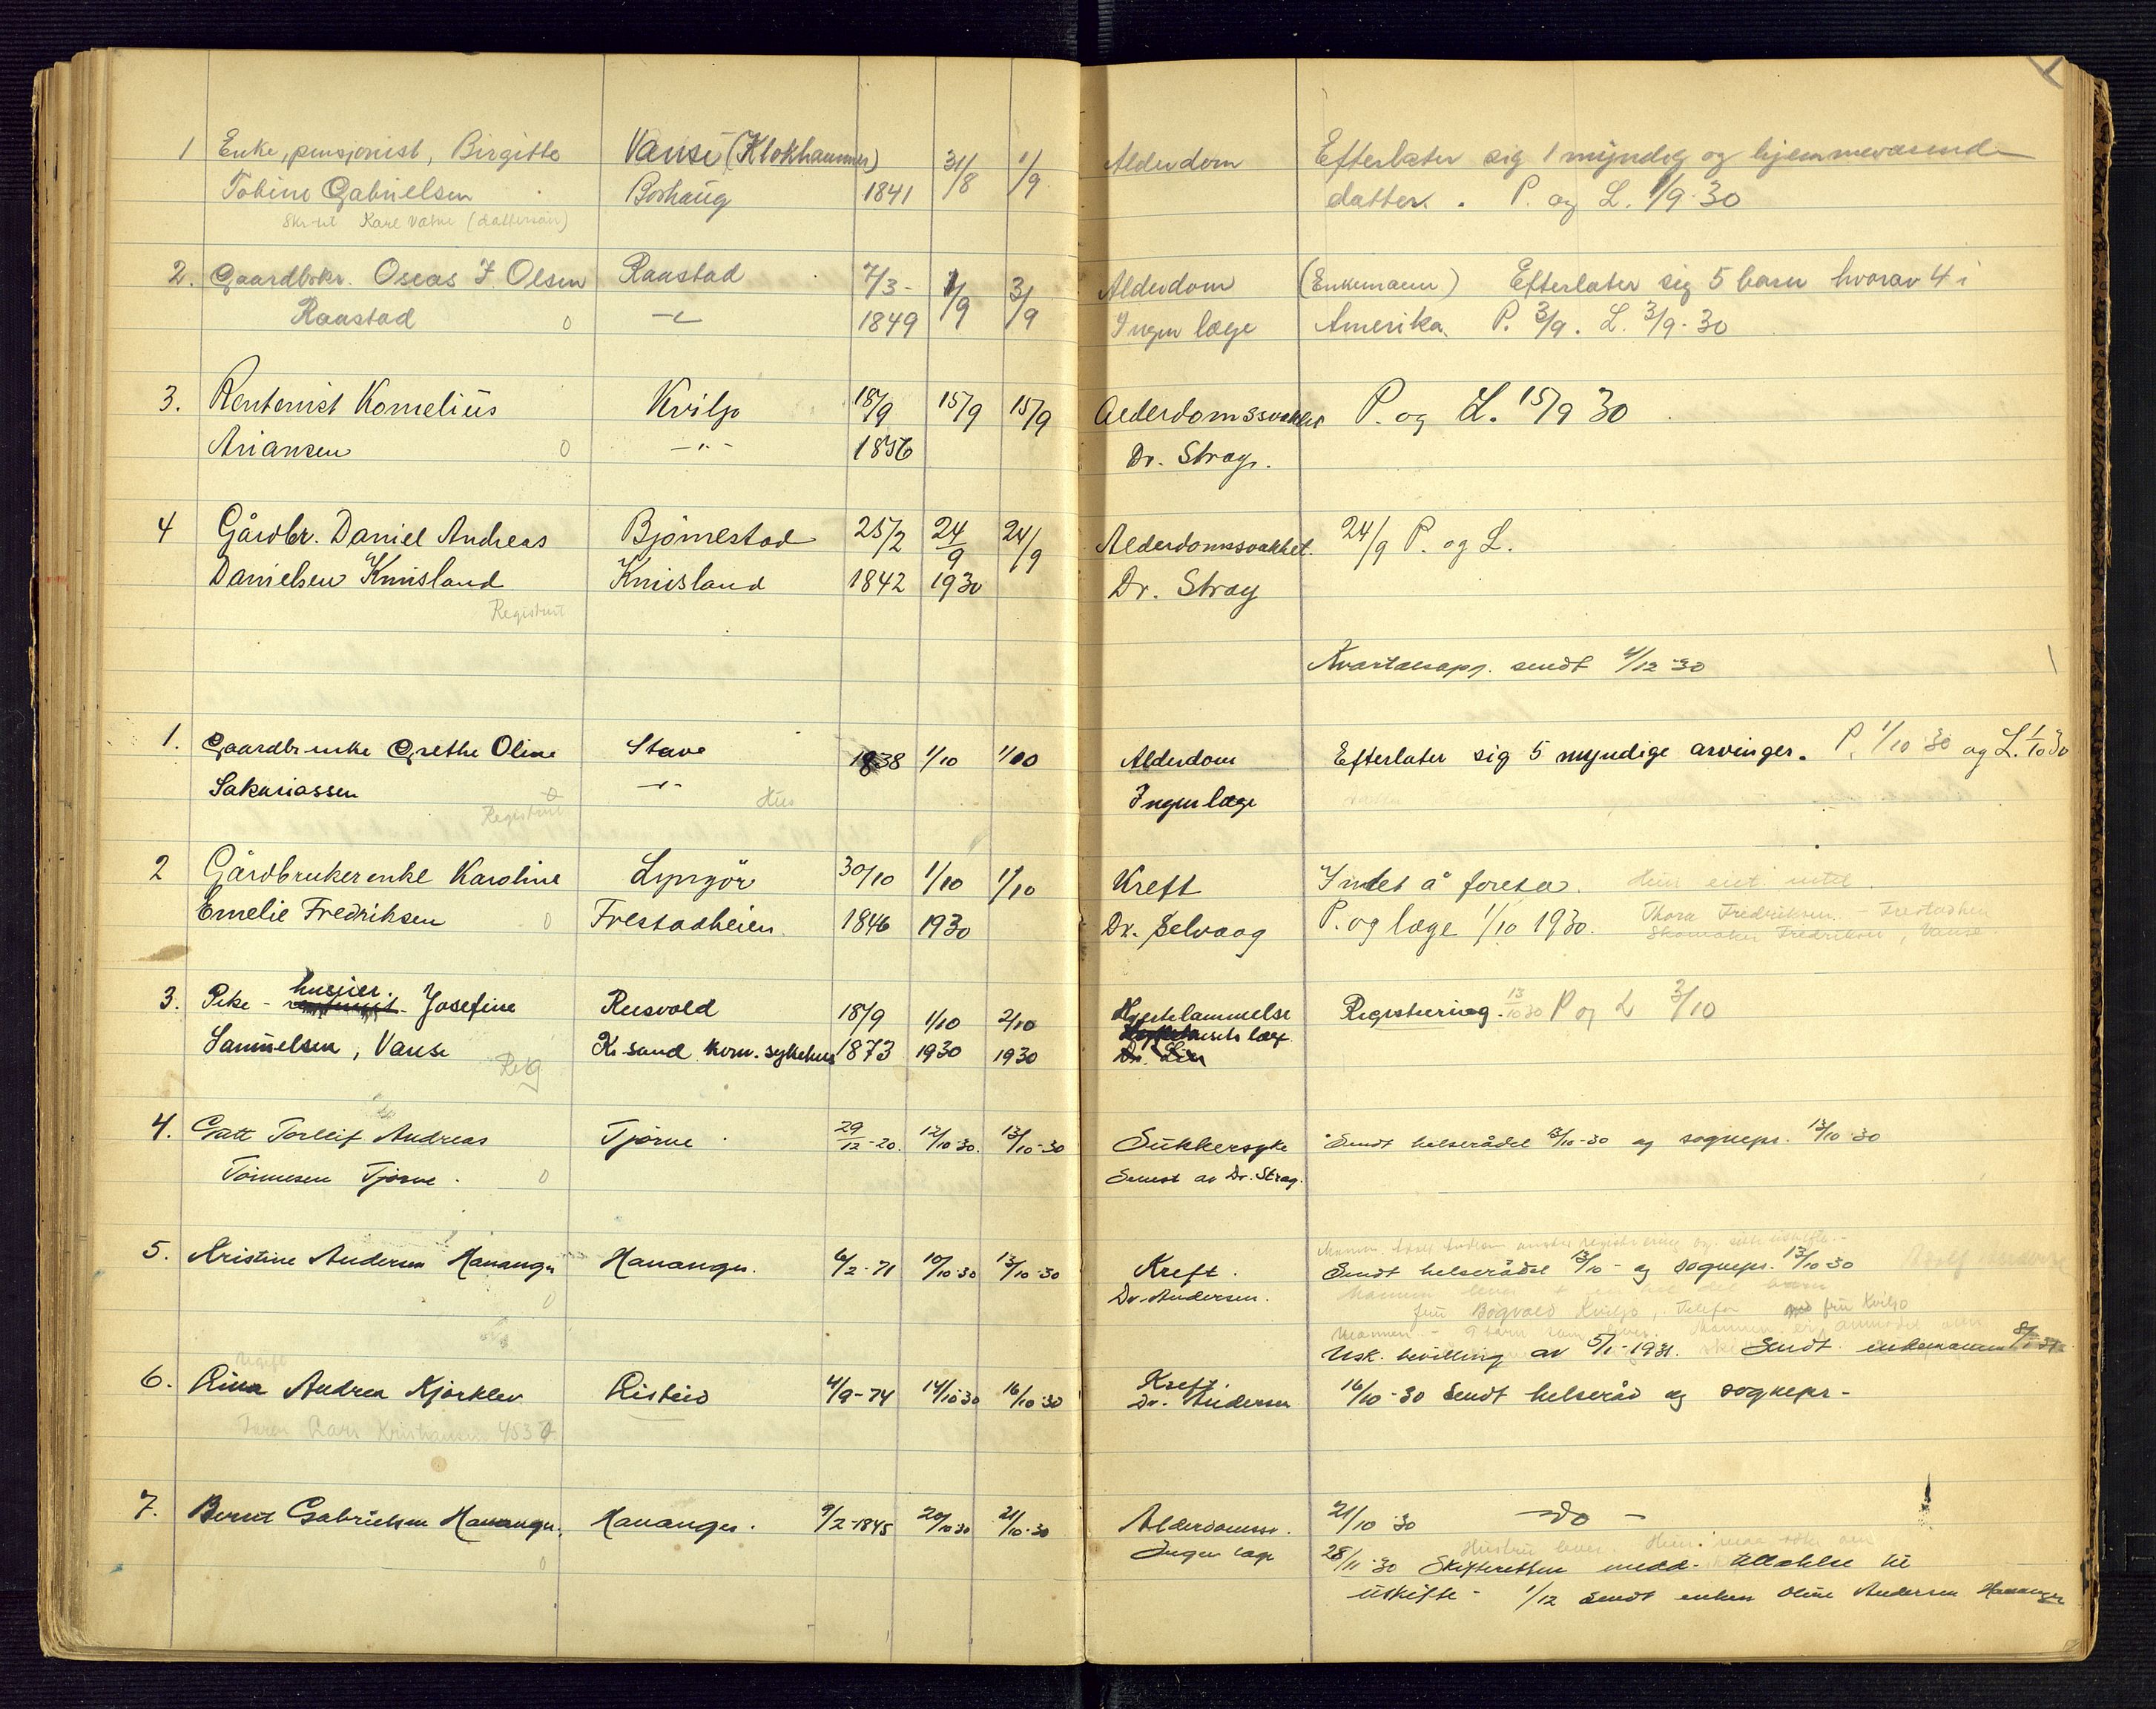 1 Enke, pensjonist, Birgitte Vanse (Klokhammer) 31/8 1/9 Alderdom Efterlater sig 1 myndig og hjemmeværende
Tobine Gabrielsen Borhaug 1841 datter. P. og L. 1/9-30
Karl Vatne (dattersøn)
2. Gaardbkr. Oseas J. Olsen Raastad 7/3- 1/9 3/9 Alderdom (Enkemann) Efterlater sig 5 barn hvorav 4 i
Raastad 0 -"- 1849 Ingen læge Amerika. P. 3/9. L. 3/9-30
3. Rentenist Kornelius Kviljo 18/9 15/9 15/9 Alderdomssvakhet P. og L. 15/9 30
Ariansen 0 -"- 1856 Dr. Stray.
4 Gårdbr. Daniel Andreas Bjørnestad 25/2 24/9 24/9 Alderdomssvakhet. 24/9 P. og L.
Danielsen Kmisland Kmisland 1842 1930 Dr. Stray
Registrert
Kvartalsopg. sendt 4/12-30
1. Gaardbr enke Grethe Oline Stave 1838 1/10 1/10 Alderdom Efterlater sig 5 myndige arvinger. P. 1/10-30 og L. 1/10 30
Sakariassen -"- Hus Ingen læge
Registrert
2 Gårdbrukerenke Karoline Lyngör 30/10 1/10 1/10 Kreft Intet å foreta. Hun eiet intet.
Emelie Fredriksen 0 Frestadheien 1846 1930 Dr. Selvaag P. og læge 1/10 1930. Thora Fredriksen - Frestadhei
Skomaker Fredriksen, Vanse
3. Pike - husier. Josefine Rusvold 18/9 1/10 2/10 Hjertelammelse Registrering. 13/10 30 P og L 3/10
Samuelsen, Vanse Reg Kr.sand kom. sykehus 1873 1930 1930
4. Gatt Torleif Andreas Tjørve 29/12-20. 12/10-30. 13/10-30 Sukkersyke Sendt helserådet 13/10-30 og sogneps. 13/10-30
Tönnesen Tjørve. 0 Senest av Dr. Stray.
5. Kristine Andersen Hananger Hananger. 6/2-71 10/10-30 13/10-30 Kreft. Sendt helserådet 13/10- og sogneps. 13/10-30
0 Dr. Andersen.
Bogvald Kviljo, Telefon fru Kviljo
Usk. bevilling av 5/1-1931. Sendt enkemannen 8/1-31.
6. Rina Andrea Kjørklev Risteid 4/9-74 14/10-30 16/10-30 Kreft. Dr. Andersen 16/10-30 Sendt helseråd og sogneps-
Lars Kristiansen
7. Bernt Gabrielsen Hananger. Hananger. 9/2-1845 20/10-30 21/10-30 Alderdomssv. 21/10-30 -do-
0 Ingen læge 28/11-30 Skifteretten medd. tillatelse til
uskifte- 1/12 sendt enken Oline Andersen Hananger